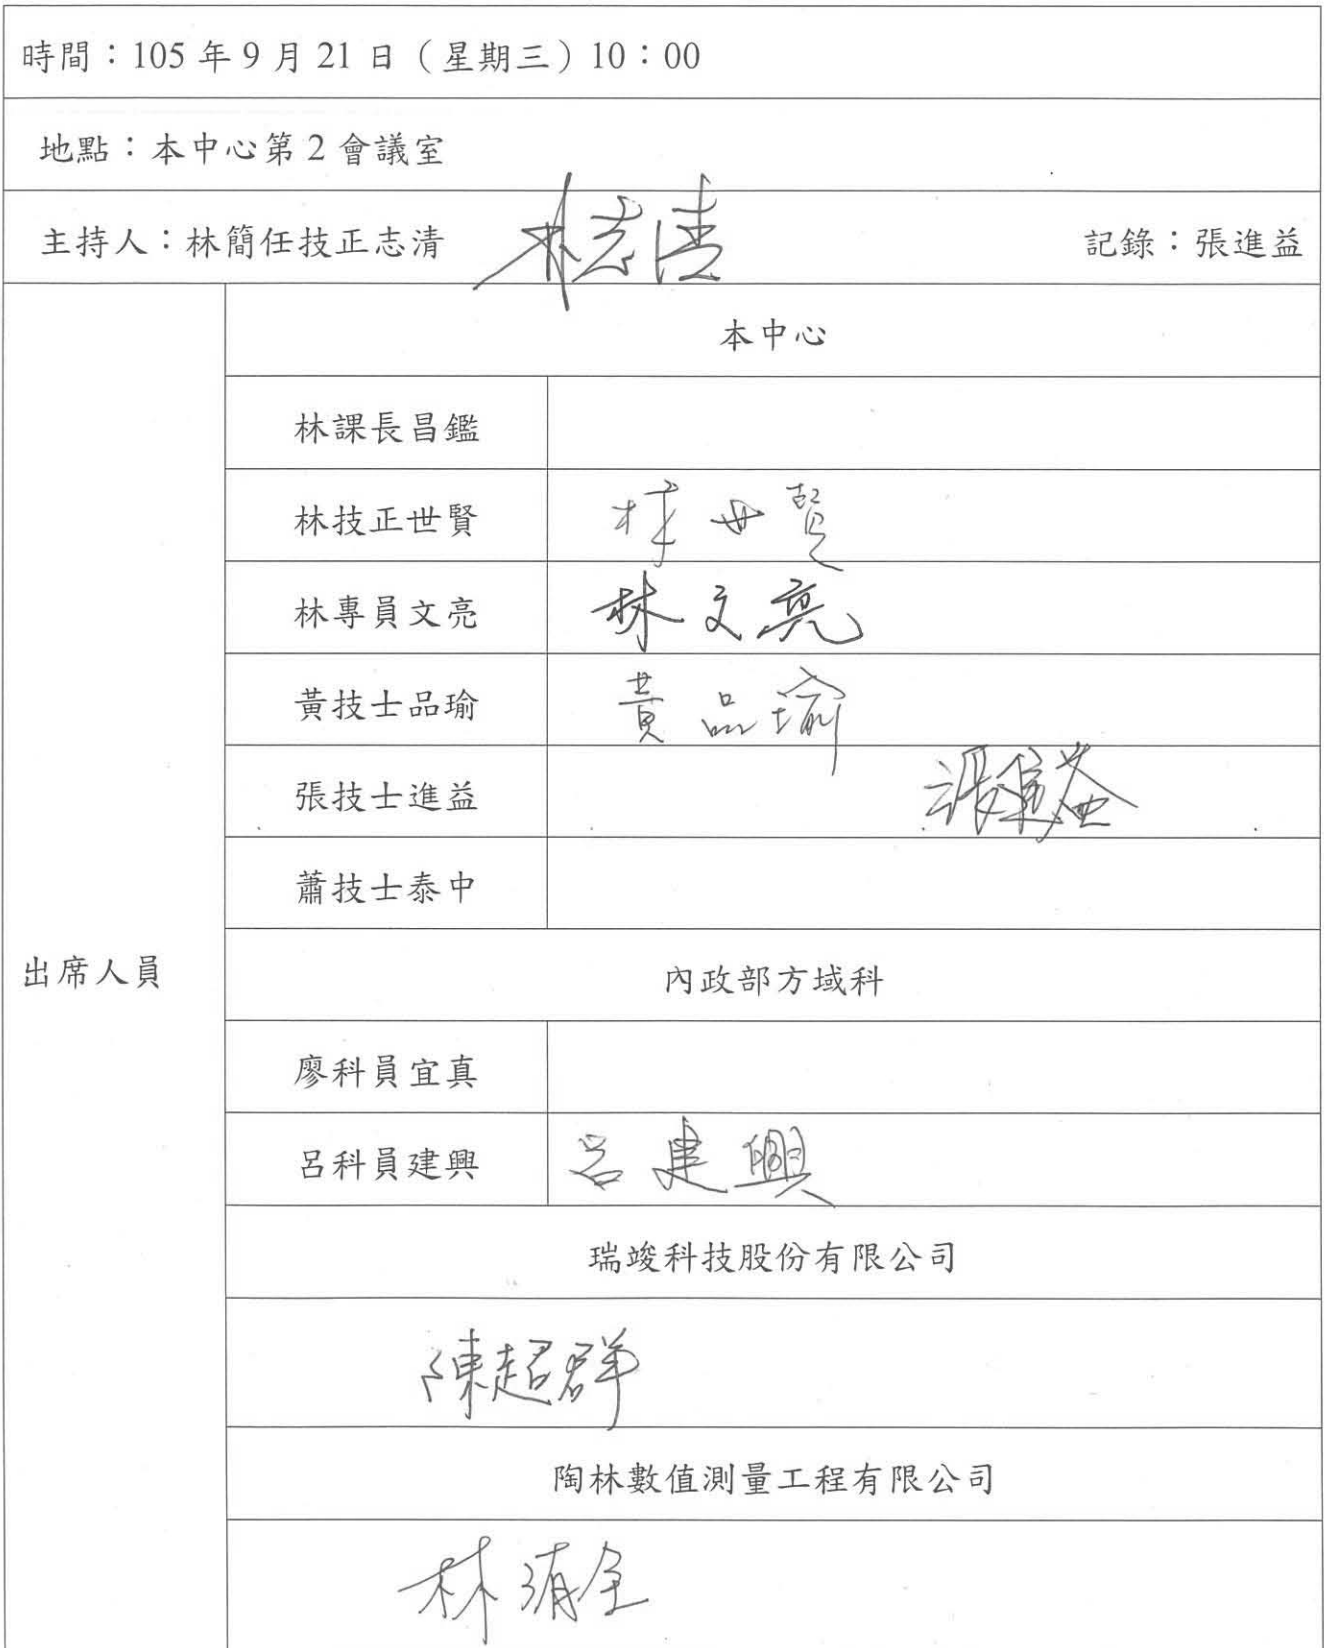 時間：105 年 9 月 21 日（星期三）10：00
地點：本中心第 2 會議室
主持人：林簡任技正志清 林志清 記錄：張進益
本中心
林課長昌鑑
林技正世賢 林世賢
林專員文亮 林文亮
黃技士品瑜 黃品瑜
張技士進益 張進益
蕭技士泰中
出席人員
內政部方域科
廖科員宜真
呂科員建興 呂建興
瑞竣科技股份有限公司
陳超群
陶林數值測量工程有限公司
林清全